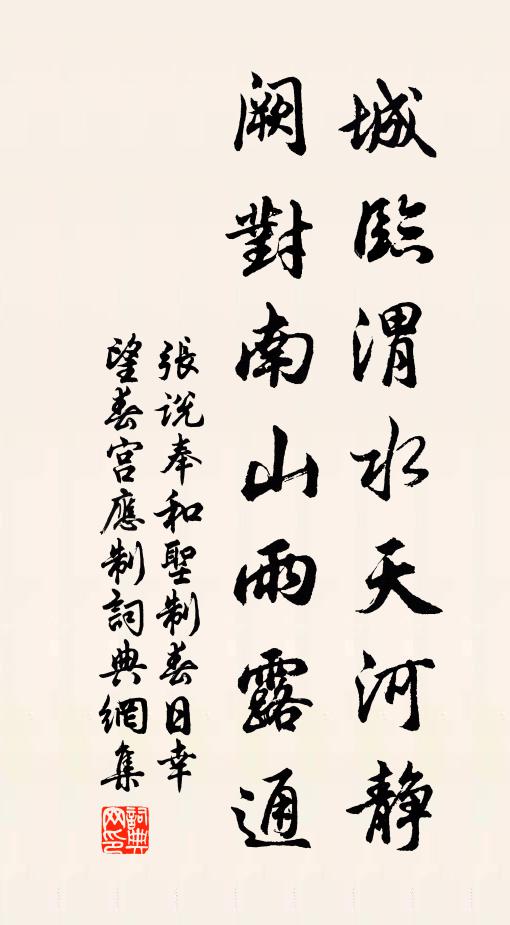 城臨渭水天河静
闕對南山雨露通
張説奉和聖制春日幸
望春宫應制詞典網集
詞典網印